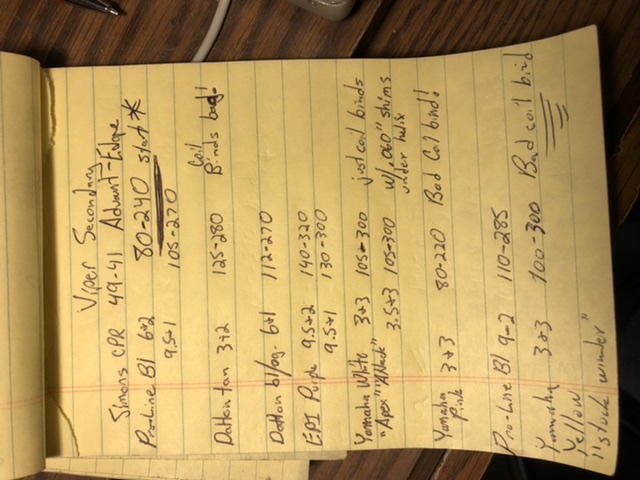 Viper Secondary
Simons CPR 49-41 Advant-Edge
Pro-Line Bl 6+2 80-240 start *
9.5+1 105-270
Dalton tan 3+2 125-280 Coil Binds bad!
Dalton bl/og. 6+1 112-270
EPI Purple 9.5+2 140-320
9.5+1 130-300
Yamaha White 3+3 105-300 just coil binds
"Apex" "Attack" 3.5+3 105-300 w/.060" shims under helix
Yamaha Pink 3+3 80-220 Bad Coil bind!
Pro-Line Bl 9-2 110-285
Yamaha Yellow 3+3 100-300 Bad coil bind
"stock winder"